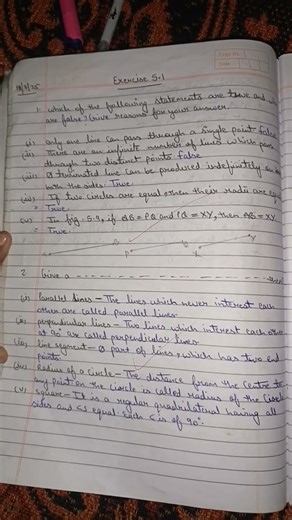 18/7/25
EXERCISE 5.1
1. which of the following statements are true and
are false? Give reasons for your answer.
(i) only one line can pass through a single point false
(ii) There are an infinite number of lines which pass
through two distinct points false
(iii) A terminated line can be produced indefinitely on
both the sides. True
(iv) If two circles are equal then their radii are eq
True
(v) In fig. 5.9, if AB = PQ and PQ = XY, then AB = XY.
True.
P
X
Y
2 Give a
(i) Parallel lines - The lines which never interest each
other are called parallel lines
(ii) perpendicular lines - Two lines which interest each other
at 90° are called perpendicular lines
(iii) line segment - A part of lines which has two end
points.
(iv) Radius of a Circle - The distance from the centre to
any point on the circle is called radius of the circle
(v) square - It is a regular quadrilateral having all
sides and <s equal. Each < is of 90°.